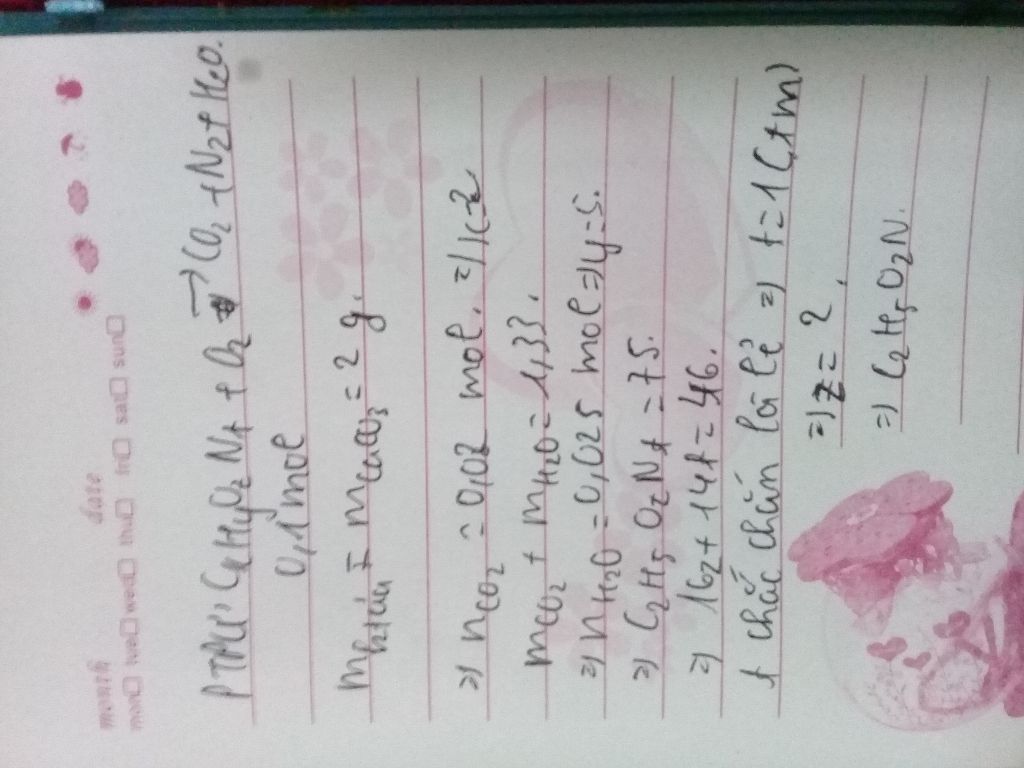 month date
mon wed thu fri sat sun
PTPU: CxHyOzNt + O2 → CO2 + N2 + H2O.
0,1 mol
m = mCaCO3 = 2 g.
=) nCO2 = 0,02 mol. =) x=2
mCO2 + mH2O = 1,33.
=) nH2O = 0,025 mol =) y=5.
=) C2H5OzNt = 75.
=) 16z + 14t = 46.
t chắc chắn là lẻ =) t = 1 (tm)
=) z = 2.
=) C2H5O2N.